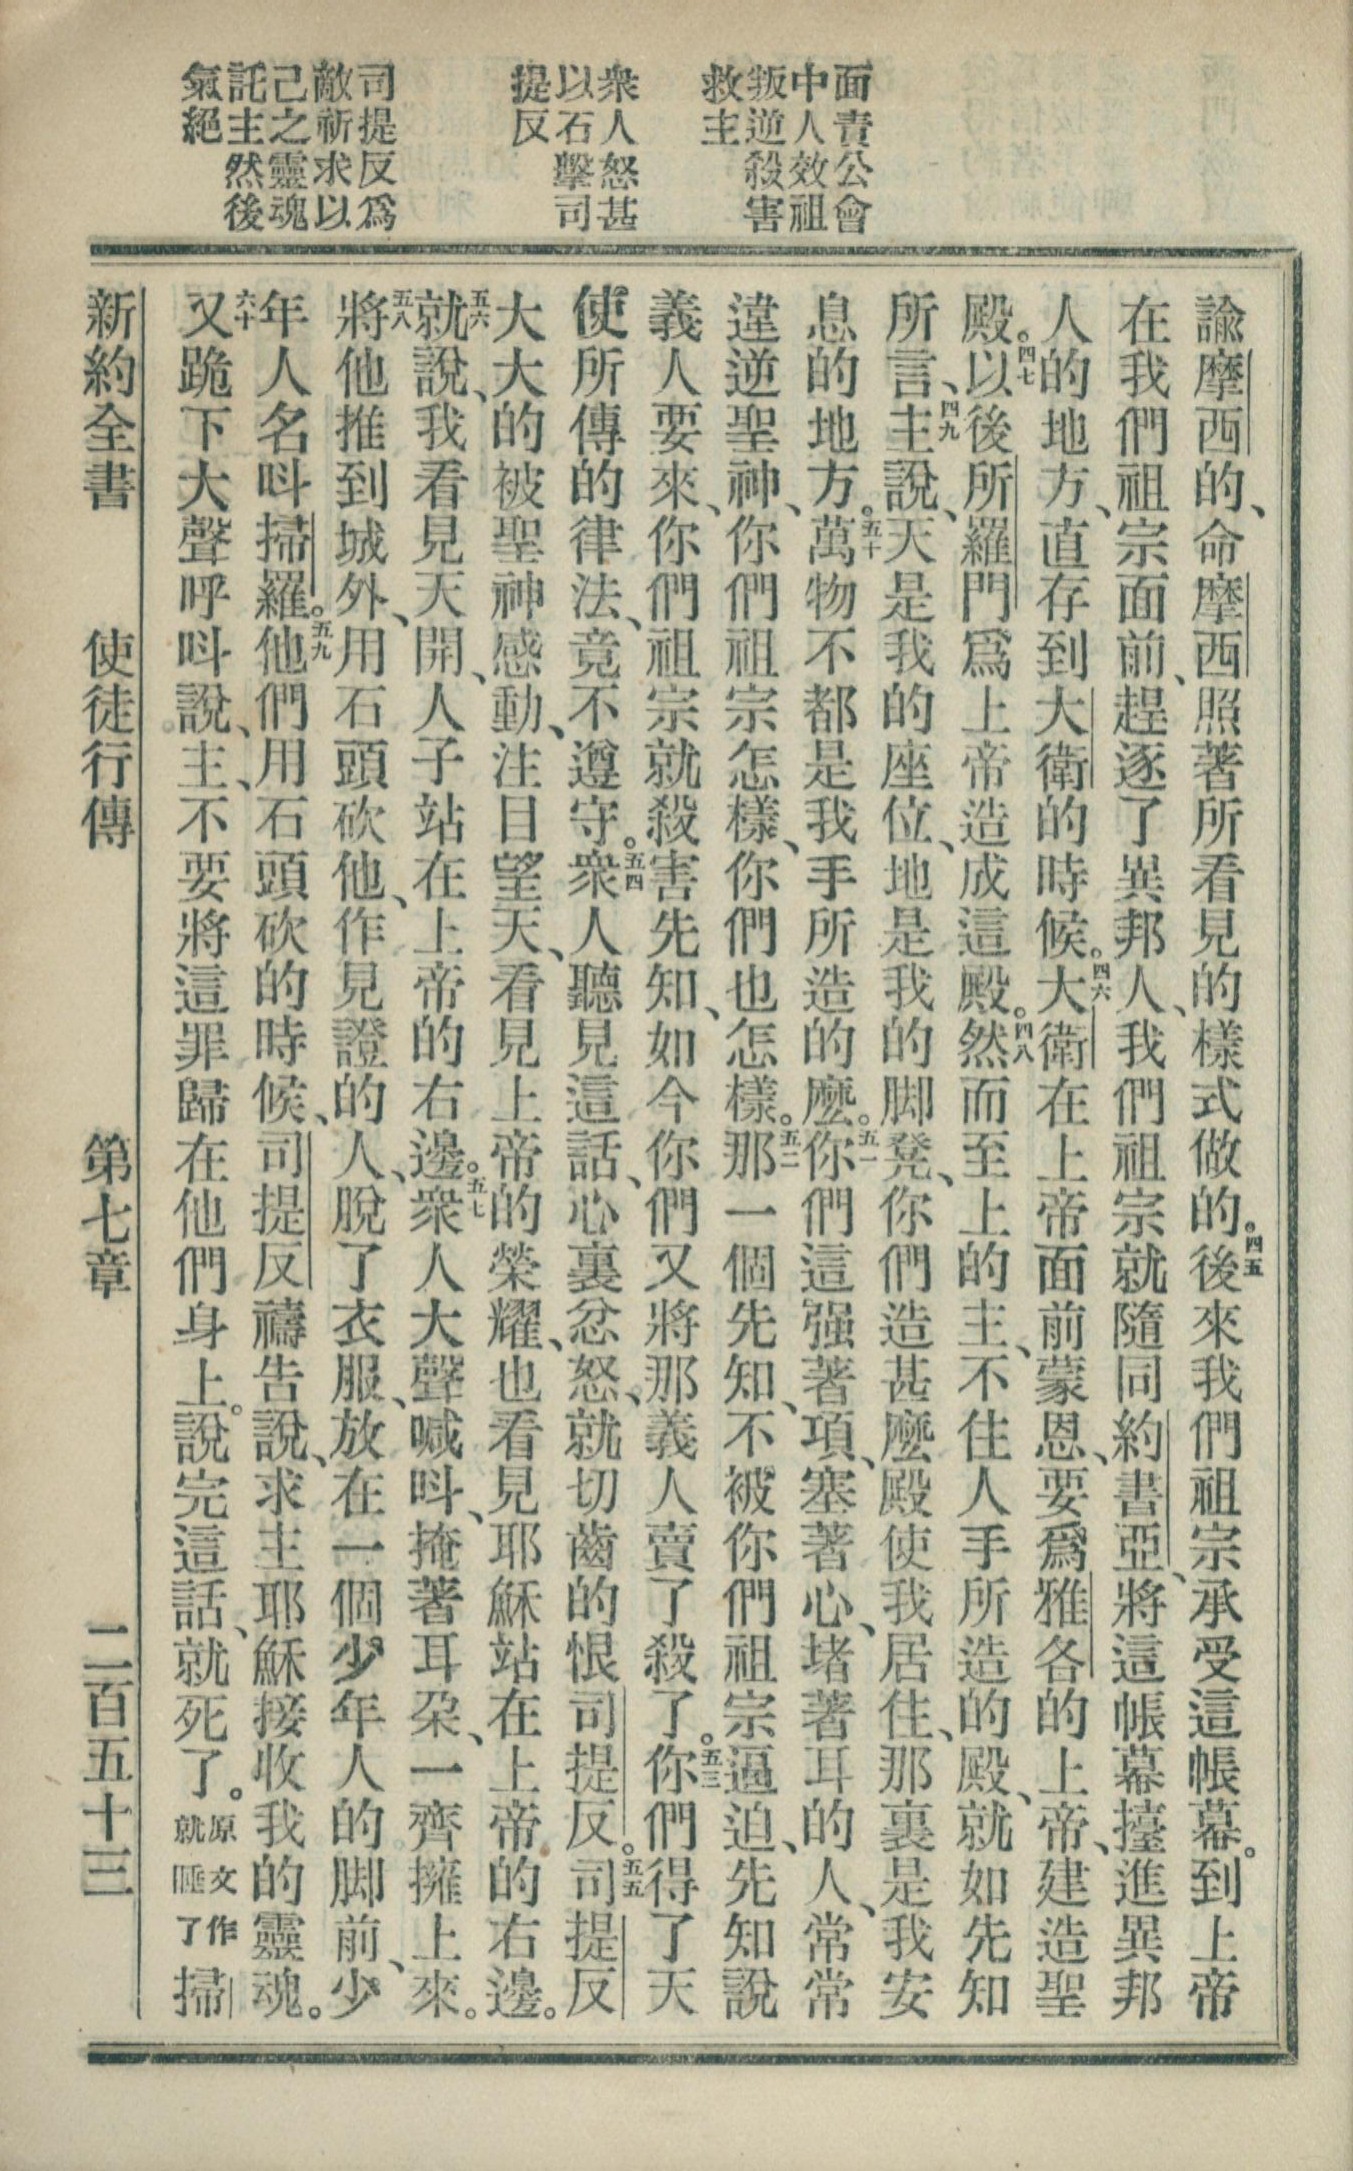 面責公會
中人效祖
叛逆殺害
救主
衆人怒甚
以石擊司
提反
司提反爲
敵祈求以
己之靈魂
託主然後
氣絕
諭摩西的、命摩西照著所看見的樣式做的。四五後來我們祖宗承受這帳幕。到上帝
在我們祖宗面前、趕逐了異邦人、我們祖宗就隨同約書亞、將這帳幕擡進異邦
人的地方、直存到大衛的時候。四六大衛在上帝面前蒙恩、要爲雅各的上帝、建造聖
殿。四七以後所羅門爲上帝造成這殿。四八然而至上的主、不住人手所造的殿、就如先知
所言、四九主說、天是我的座位、地是我的脚凳、你們造甚麽殿使我居住、那裏是我安
息的地方。五十萬物不都是我手所造的麽。五一你們這强著項、塞著心、堵著耳的人、常常
違逆聖神、你們祖宗怎樣、你們也怎樣。五二那一個先知、不被你們祖宗逼迫、先知說
義人要來、你們祖宗就殺害先知、如今你們又將那義人賣了殺了。五三你們得了天
使所傳的律法、竟不遵守。五四衆人聽見這話、心裏忿怒、就切齒的恨司提反。五五司提反
大大的被聖神感動、注目望天、看見上帝的榮耀、也看見耶穌站在上帝的右邊。
五六就說、我看見天開、人子站在上帝的右邊。五七衆人大聲喊呌、掩著耳朶、一齊擁上來。
五八將他推到城外、用石頭砍他、作見證的人、脫了衣服、放在一個少年人的脚前、少
年人名呌掃羅。五九他們用石頭砍的時候、司提反禱告說、求主耶穌接收我的靈魂。
六十又跪下大聲呼呌說、主、不要將這罪歸在他們身上。說完這話、就死了。原文作就睡了掃
新約全書　使徒行傳　第七章　二百五十三